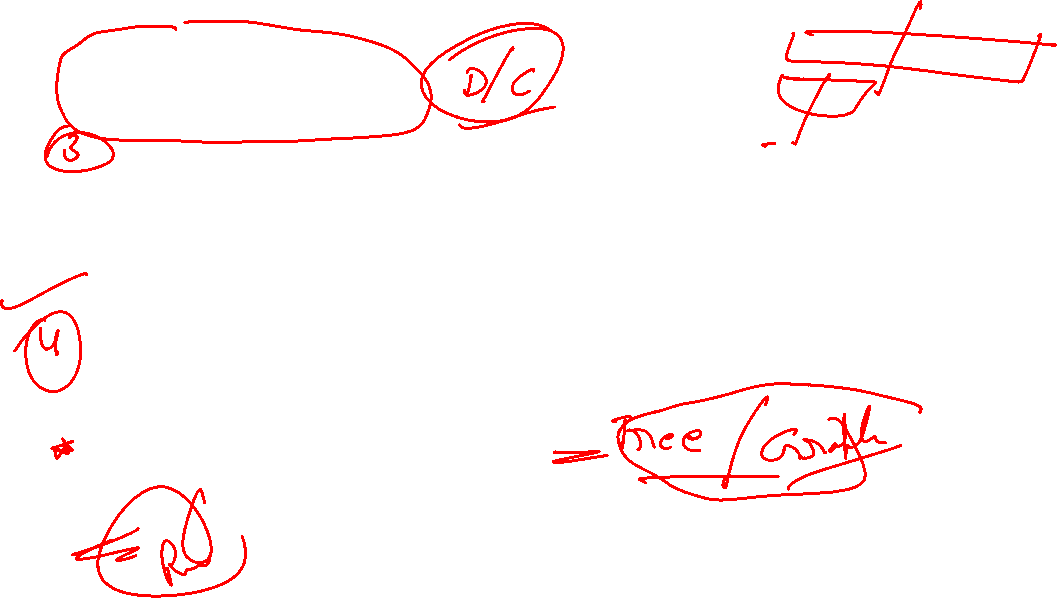 D/C
3
4
Tree / Graph